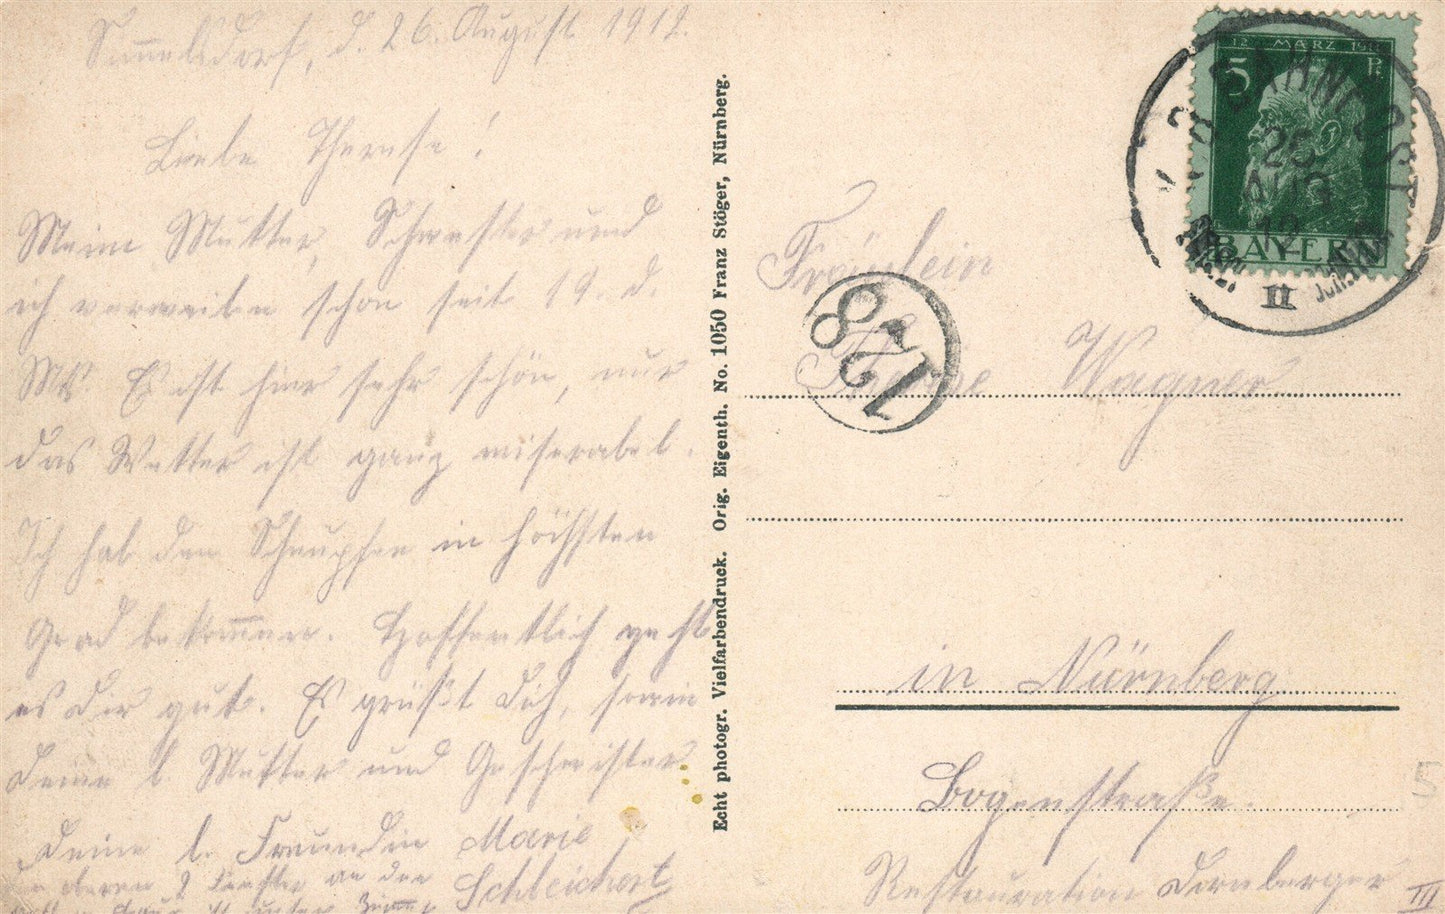 Simmelsdorf, d. 26. August 1912.
Liebe Therese!
Meine Mutter, Schwester und
ich verweilen schon seit 19. d.
Mts. Es ist hier sehr schön, nur
das Wetter ist ganz miserabel.
Ich hab den Schnupfen in höchsten
Grad bekommen. Hoffentlich geht
es dir gut. Es grüßt Dich, sowie
Deine l. Mutter und Geschwister
Deine l. Freundin Marie
Schleichert
oberen 2 Fenster an der
ist unser Zimmer
Echt photogr. Vielfarbendruck. Orig. Eigenth. No. 1050 Franz Stöger, Nürnberg.
12. MÄRZ 1911
5 Pf.
BAYERN
BAHNPOST
26
AUG
12
II
128
Fräulein
Therese Wagner
in Nürnberg
Bogenstraße.
Restauration Dornberger
III